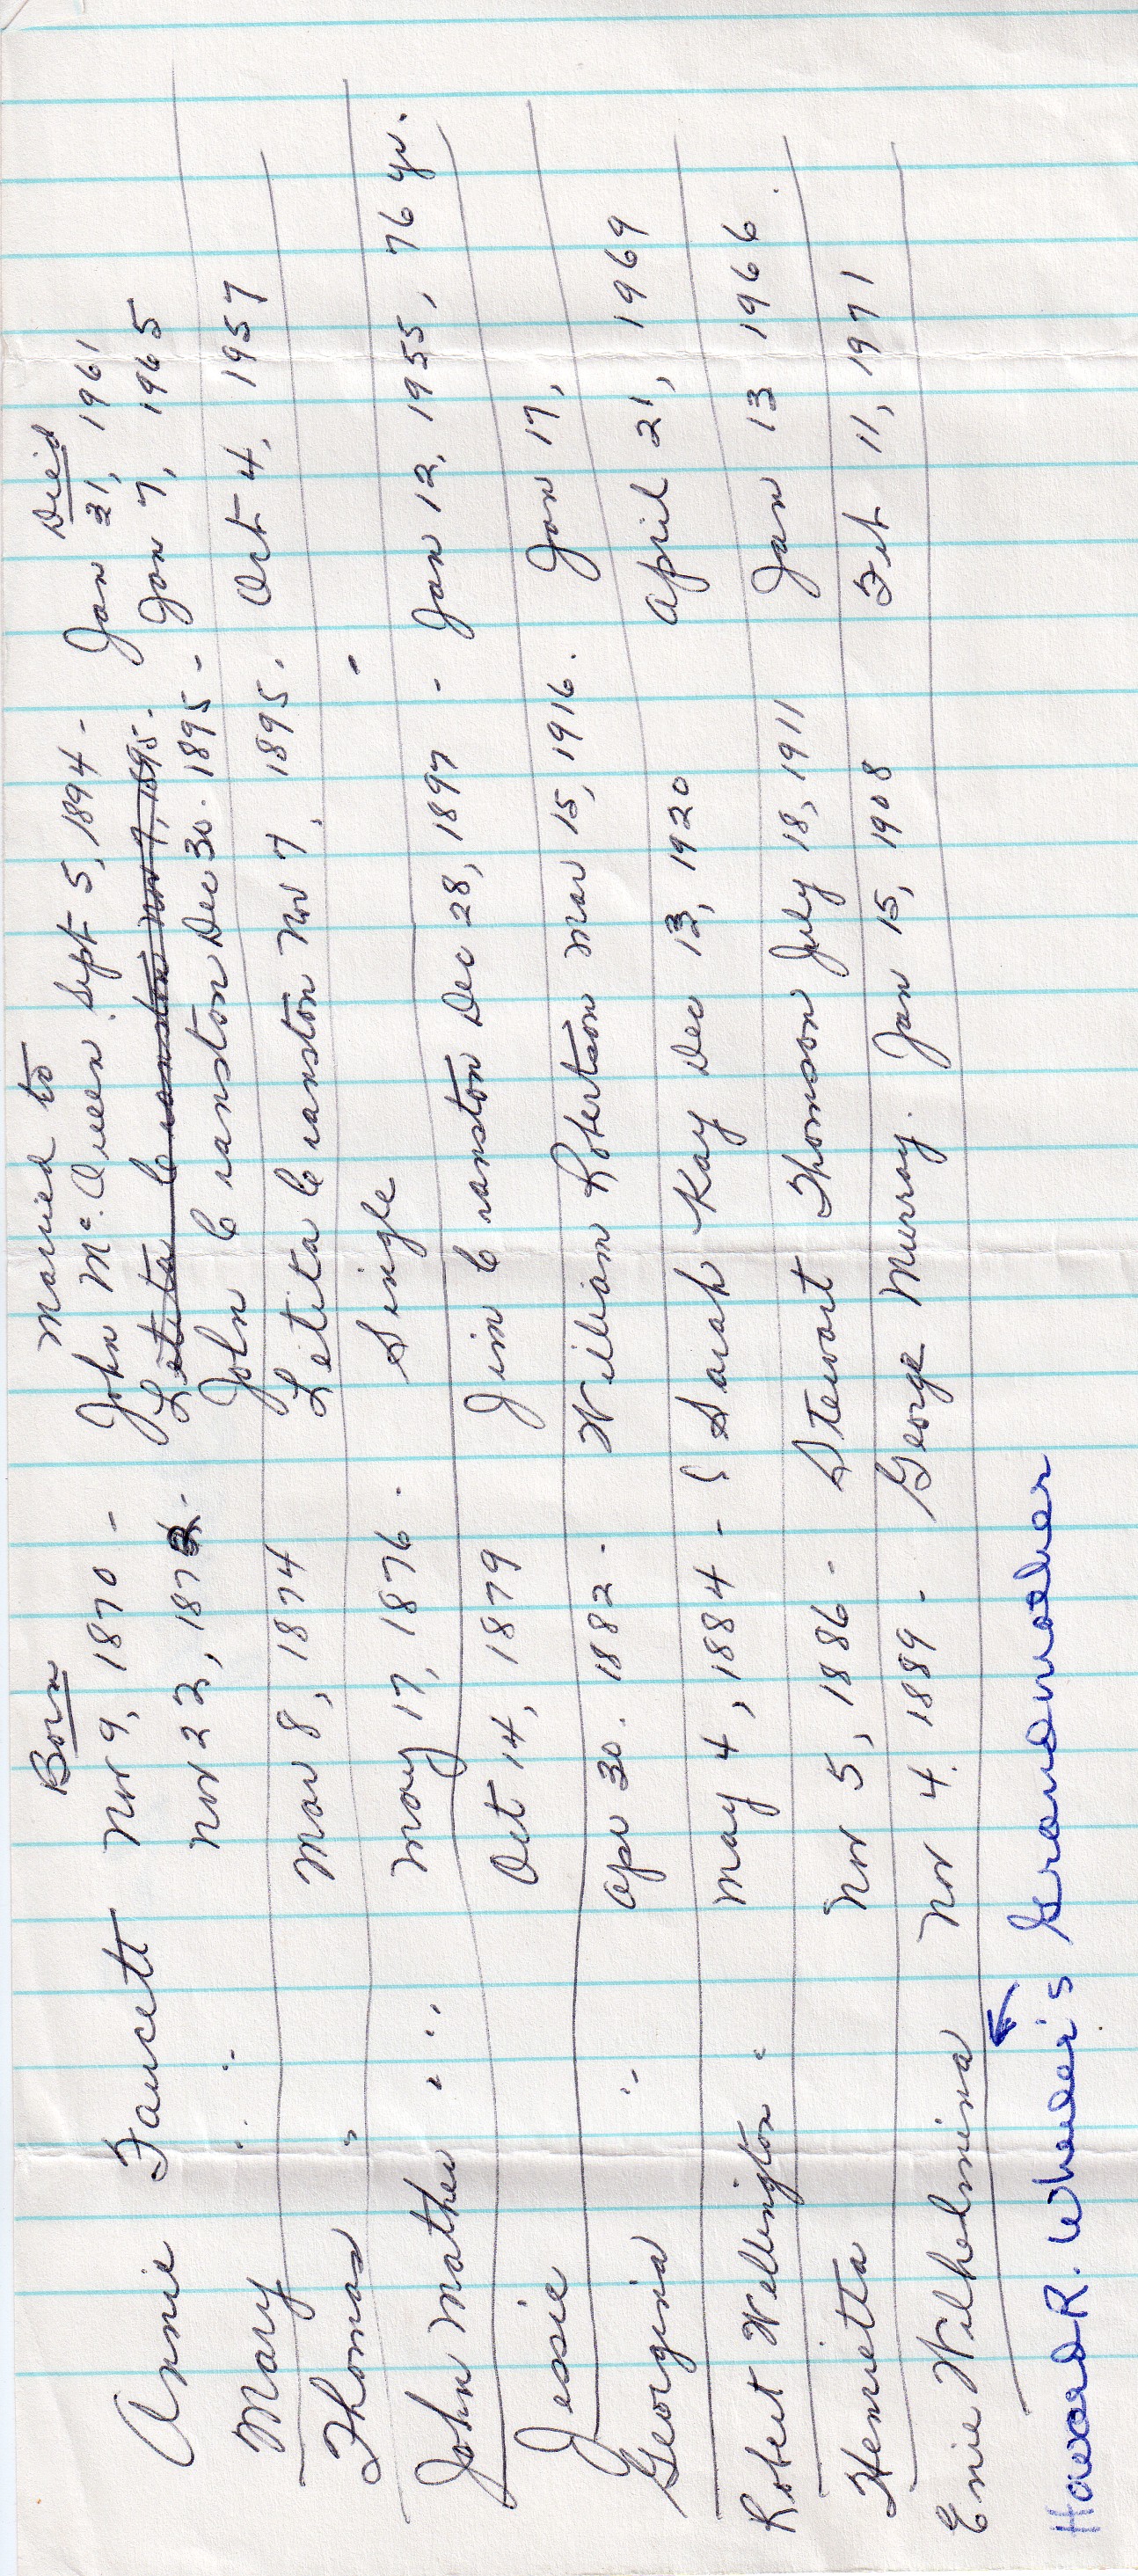 Born Married to Died
Annie Faucett Nov 9, 1870 - John Mc. Queen Sept 5, 1894 - Jan 31, 1961
Letita Cranston Nov 7, 1895.
Mary " " Nov 22, 1872 - John Cranston Dec 30. 1895 - Jan 7, 1965
Thomas " Mar 8, 1874 Letita Cranston Nov 7, 1895. Oct 4, 1957
John Mathew " " May 17, 1876. Single -
Jessie Oct 14, 1879 Jim Cranston Dec 28, 1897 - Jan 12, 1955, 76 yr.
Georgina " Apr 30. 1882 - William Robertson Mar 15, 1916. Jan 17,
Robert Wellington " May 4, 1884 - Sarah Kay Dec 13, 1920 April 21, 1969
Henrietta Nov 5, 1886 - Stewart Thomson July 18, 1911 Jan 13 1966.
Enie Wilhelmina Nov 4. 1889 - George Murray. Jan 15, 1908 Feb 11, 1971
Howard R. Wheeler's Grandmother